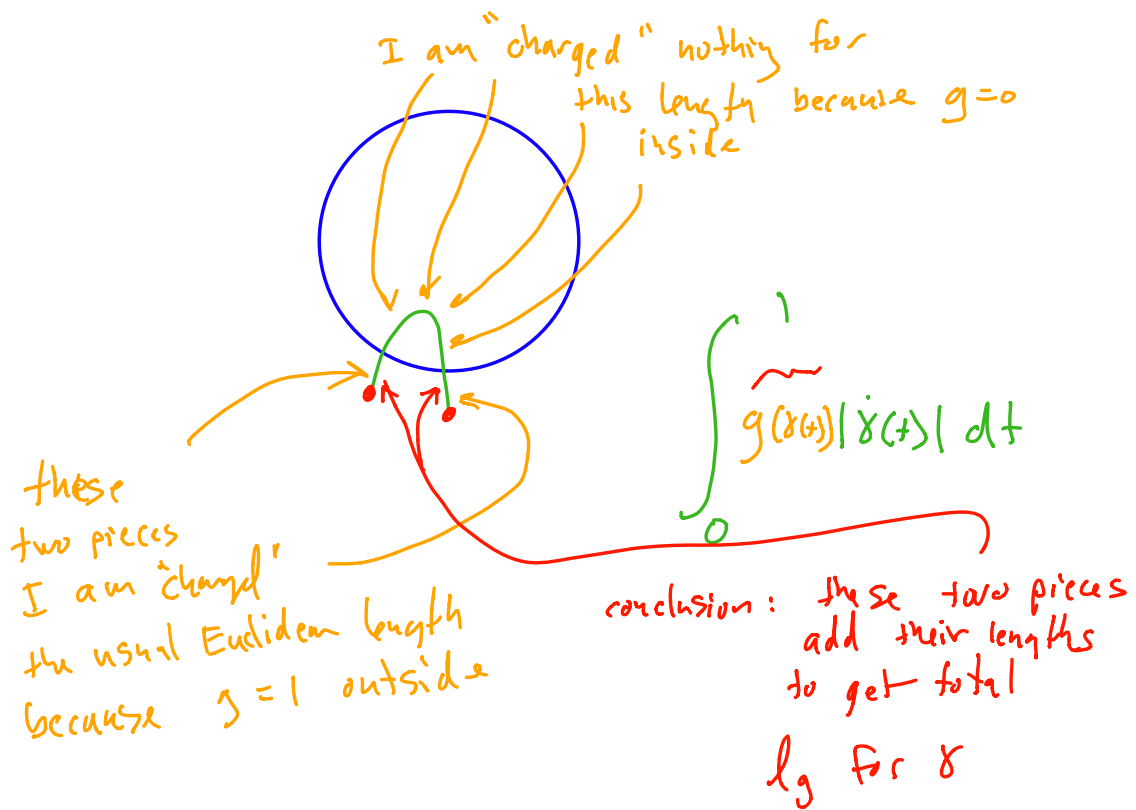 I am "charged" nothing for
this length because g=0
inside
∫₀¹ g(γ(t))|γ̇(t)| dt
these
two pieces
I am "charged"
the usual Euclidean length
because g = 1 outside
conclusion: these two pieces
add their lengths
to get total
lg for γ